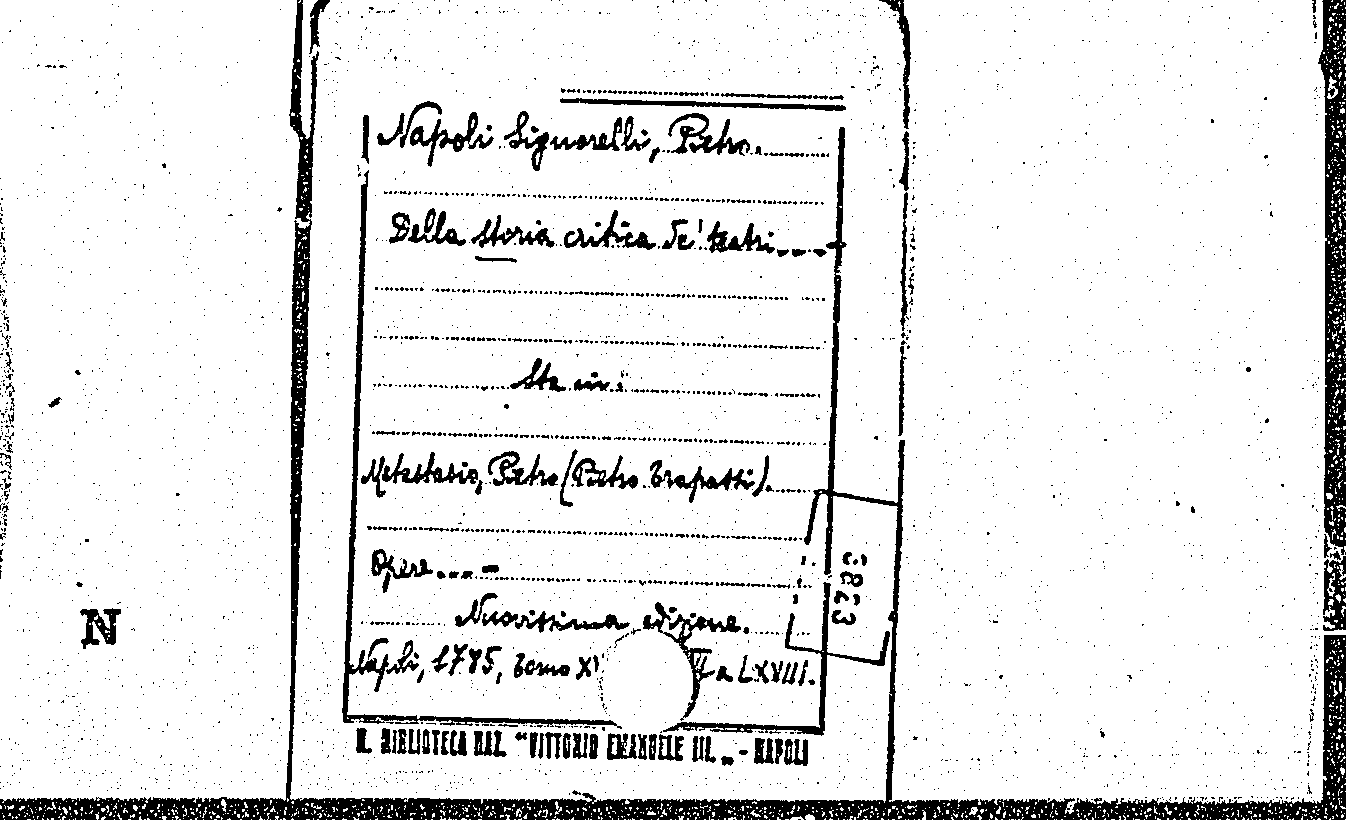 Napoli Signorelli, Pietro.
Della storia critica de' teatri....
Sta in:
Metastasio, Pietro (Pietro Trapassi).
Opere....
Nuovissima edizione.
Napoli, 1785, tomo a LXVIII.
3823
N
R. BIBLIOTECA NAZ. "VITTORIO EMANUELE III." - NAPOLI